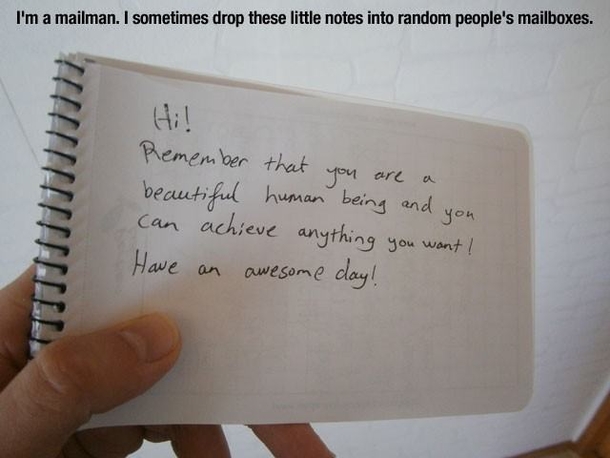 I'm a mailman. I sometimes drop these little notes into random people's mailboxes.
Hi!
Remember that you are a
beautiful human being and you
can achieve anything you want!
Have an awesome day!